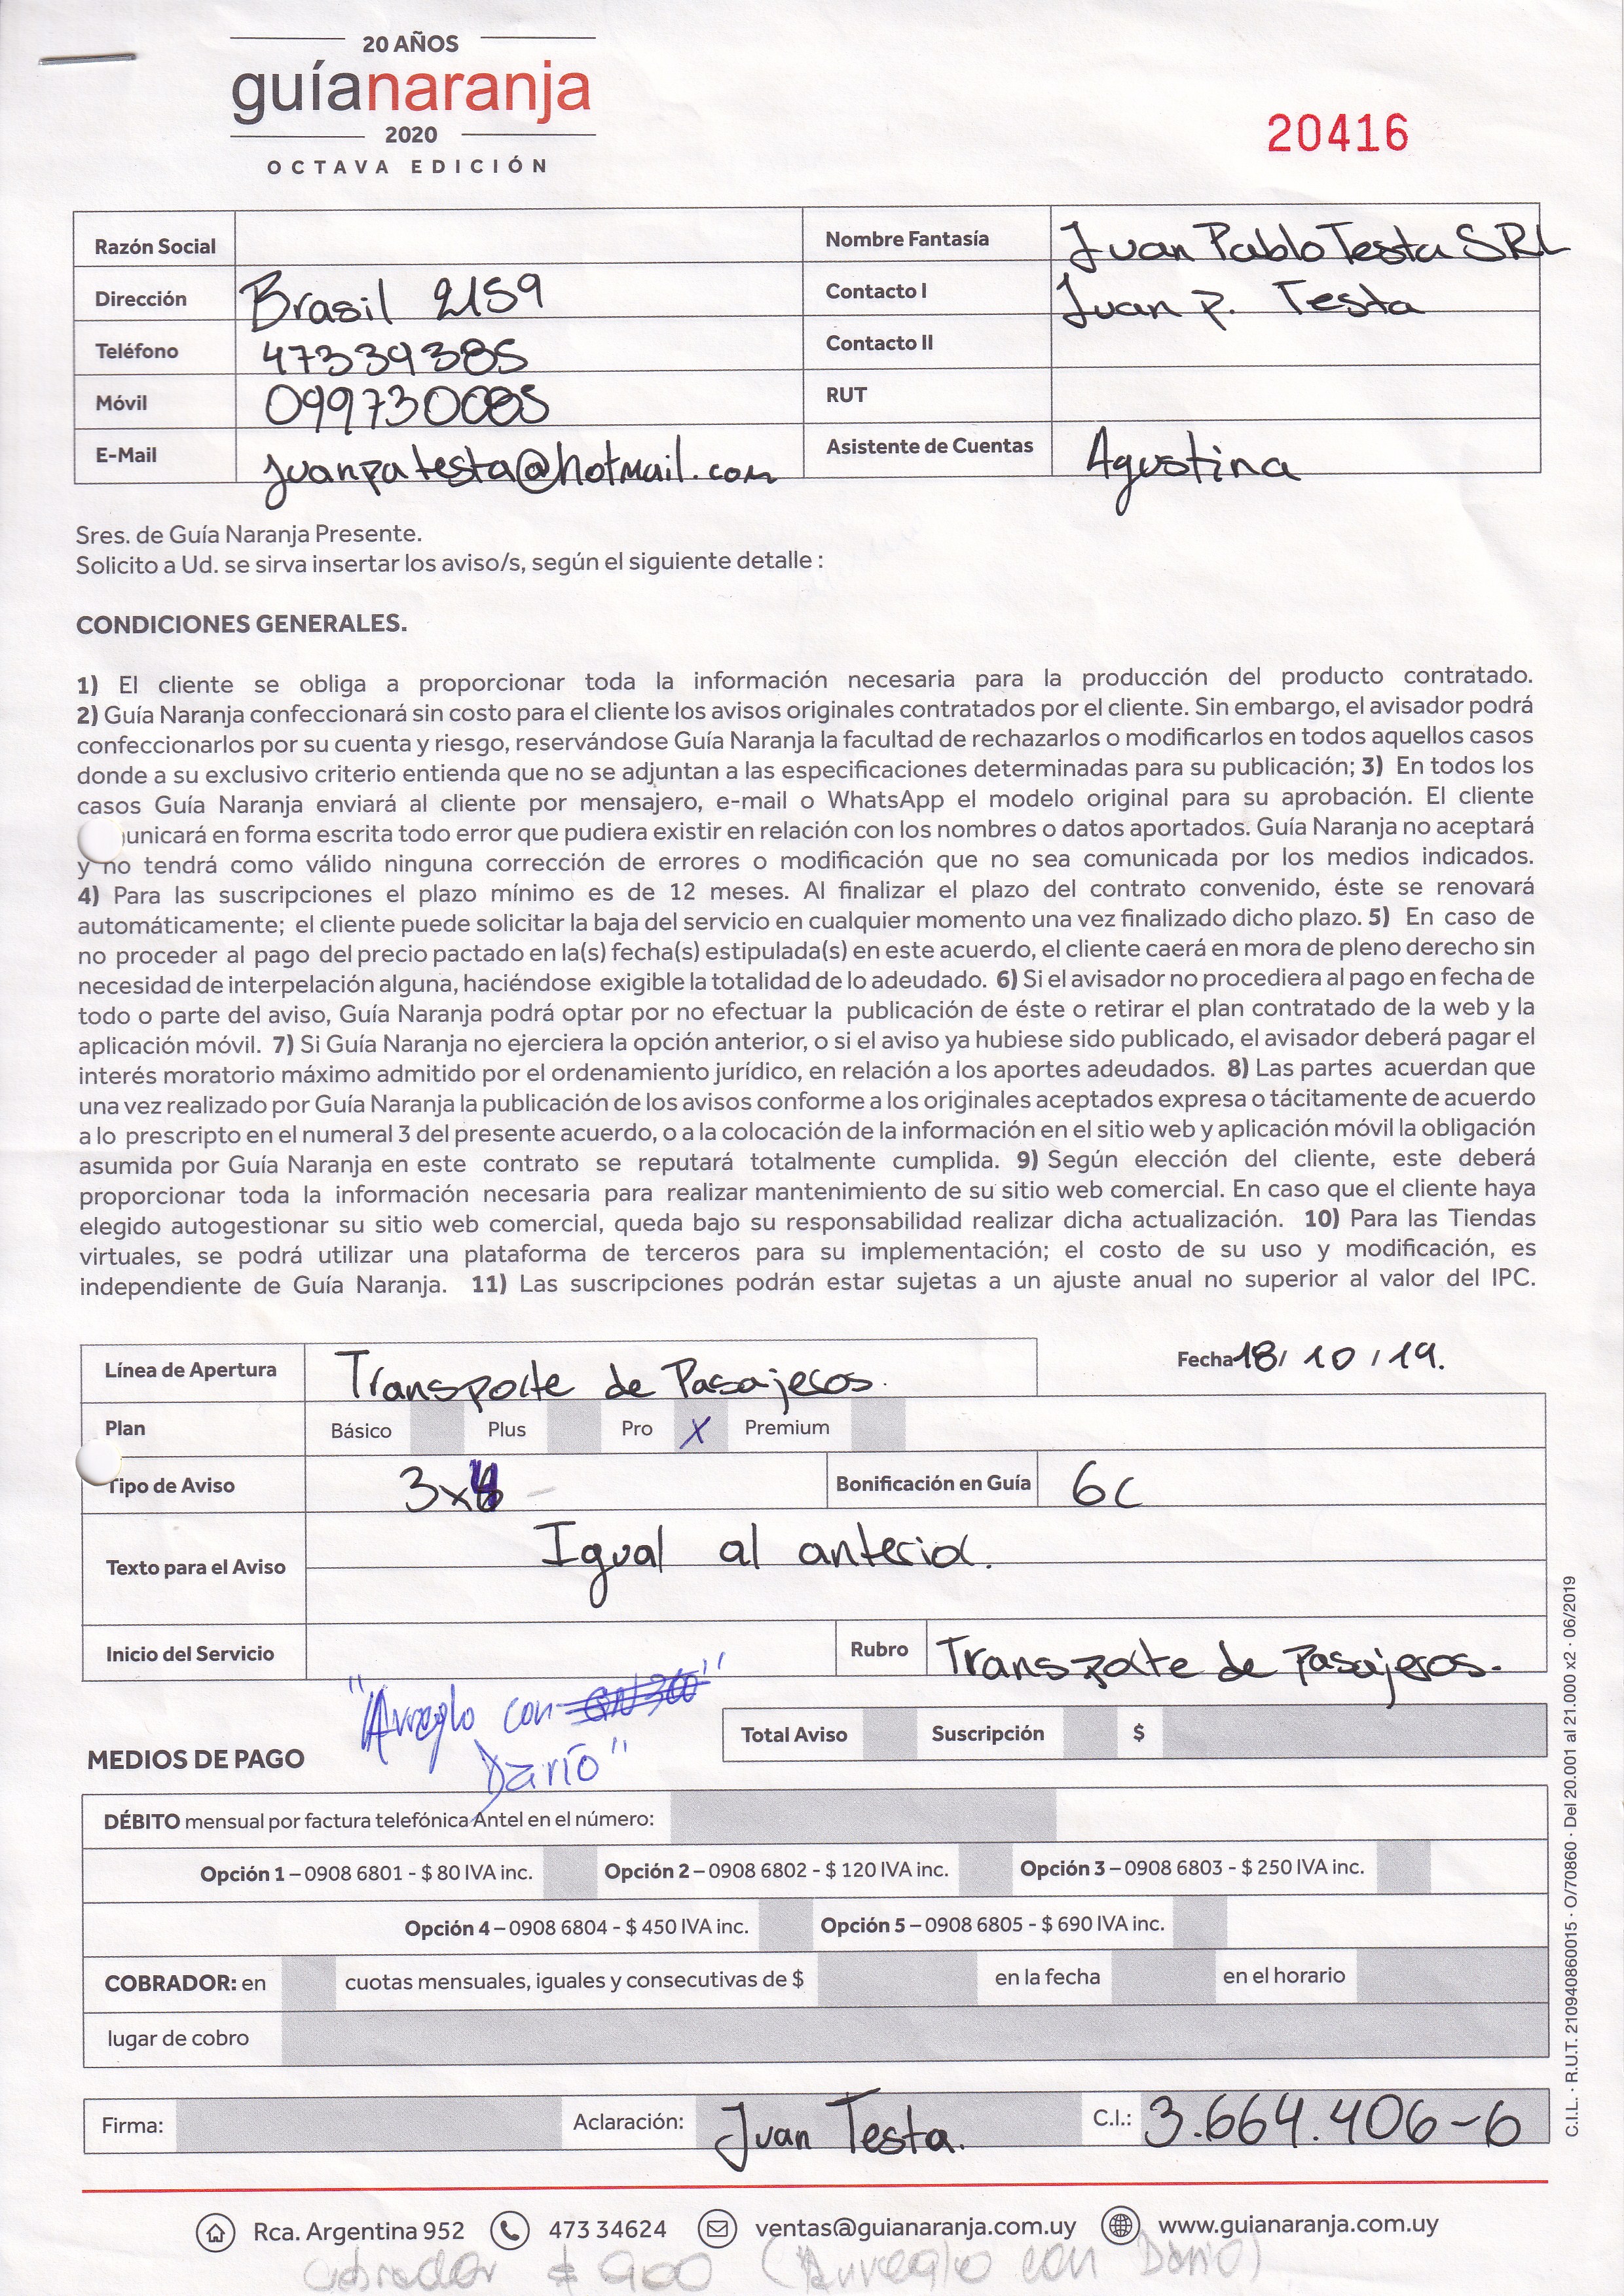 20 AÑOS
guíanaranja
2020
OCTAVA EDICIÓN
20416
Razón Social
Nombre Fantasía Juan Pablo Testa SRL
Dirección Brasil 2159
Contacto I Juan P. Testa
Teléfono 47339385
Contacto II
Móvil 099730085
RUT
E-Mail juanpatesta@hotmail.com
Asistente de Cuentas Agustina
Sres. de Guía Naranja Presente.
Solicito a Ud. se sirva insertar los aviso/s, según el siguiente detalle :
CONDICIONES GENERALES.
1) El cliente se obliga a proporcionar toda la información necesaria para la producción del producto contratado.
2) Guía Naranja confeccionará sin costo para el cliente los avisos originales contratados por el cliente. Sin embargo, el avisador podrá
confeccionarlos por su cuenta y riesgo, reservándose Guía Naranja la facultad de rechazarlos o modificarlos en todos aquellos casos
donde a su exclusivo criterio entienda que no se adjuntan a las especificaciones determinadas para su publicación; 3) En todos los
casos Guía Naranja enviará al cliente por mensajero, e-mail o WhatsApp el modelo original para su aprobación. El cliente
unicará en forma escrita todo error que pudiera existir en relación con los nombres o datos aportados. Guía Naranja no aceptará
y no tendrá como válido ninguna corrección de errores o modificación que no sea comunicada por los medios indicados.
4) Para las suscripciones el plazo mínimo es de 12 meses. Al finalizar el plazo del contrato convenido, éste se renovará
automáticamente; el cliente puede solicitar la baja del servicio en cualquier momento una vez finalizado dicho plazo. 5) En caso de
no proceder al pago del precio pactado en la(s) fecha(s) estipulada(s) en este acuerdo, el cliente caerá en mora de pleno derecho sin
necesidad de interpelación alguna, haciéndose exigible la totalidad de lo adeudado. 6) Si el avisador no procediera al pago en fecha de
todo o parte del aviso, Guía Naranja podrá optar por no efectuar la publicación de éste o retirar el plan contratado de la web y la
aplicación móvil. 7) Si Guía Naranja no ejerciera la opción anterior, o si el aviso ya hubiese sido publicado, el avisador deberá pagar el
interés moratorio máximo admitido por el ordenamiento jurídico, en relación a los aportes adeudados. 8) Las partes acuerdan que
una vez realizado por Guía Naranja la publicación de los avisos conforme a los originales aceptados expresa o tácitamente de acuerdo
a lo prescripto en el numeral 3 del presente acuerdo, o a la colocación de la información en el sitio web y aplicación móvil la obligación
asumida por Guía Naranja en este contrato se reputará totalmente cumplida. 9) Según elección del cliente, este deberá
proporcionar toda la información necesaria para realizar mantenimiento de su sitio web comercial. En caso que el cliente haya
elegido autogestionar su sitio web comercial, queda bajo su responsabilidad realizar dicha actualización. 10) Para las Tiendas
virtuales, se podrá utilizar una plataforma de terceros para su implementación; el costo de su uso y modificación, es
independiente de Guía Naranja. 11) Las suscripciones podrán estar sujetas a un ajuste anual no superior al valor del IPC.
Línea de Apertura Transporte de Pasajeros.
Fecha 18/ 10 / 19.
Plan Básico Plus Pro X Premium
Tipo de Aviso 3x4
Bonificación en Guía 6c
Texto para el Aviso Igual al anterior.
Inicio del Servicio
Rubro Transporte de Pasajeros.
"Arreglo con
Darío"
Total Aviso Suscripción $
MEDIOS DE PAGO
DÉBITO mensual por factura telefónica Antel en el número:
Opción 1 – 0908 6801 - $ 80 IVA inc. Opción 2 – 0908 6802 - $ 120 IVA inc. Opción 3 – 0908 6803 - $ 250 IVA inc.
Opción 4 – 0908 6804 - $ 450 IVA inc. Opción 5 – 0908 6805 - $ 690 IVA inc.
COBRADOR: en cuotas mensuales, iguales y consecutivas de $ en la fecha en el horario
lugar de cobro
Firma: Aclaración: Juan Testa. C.I.: 3.664.406-6
C.I.L. · R.U.T. 210940860015 · O/70860 · Del 20.001 al 21.000 x2 · 06/2019
Rca. Argentina 952 473 34624 ventas@guianaranja.com.uy www.guianaranja.com.uy
Cobrador $ 900 (Arreglo con Darío)